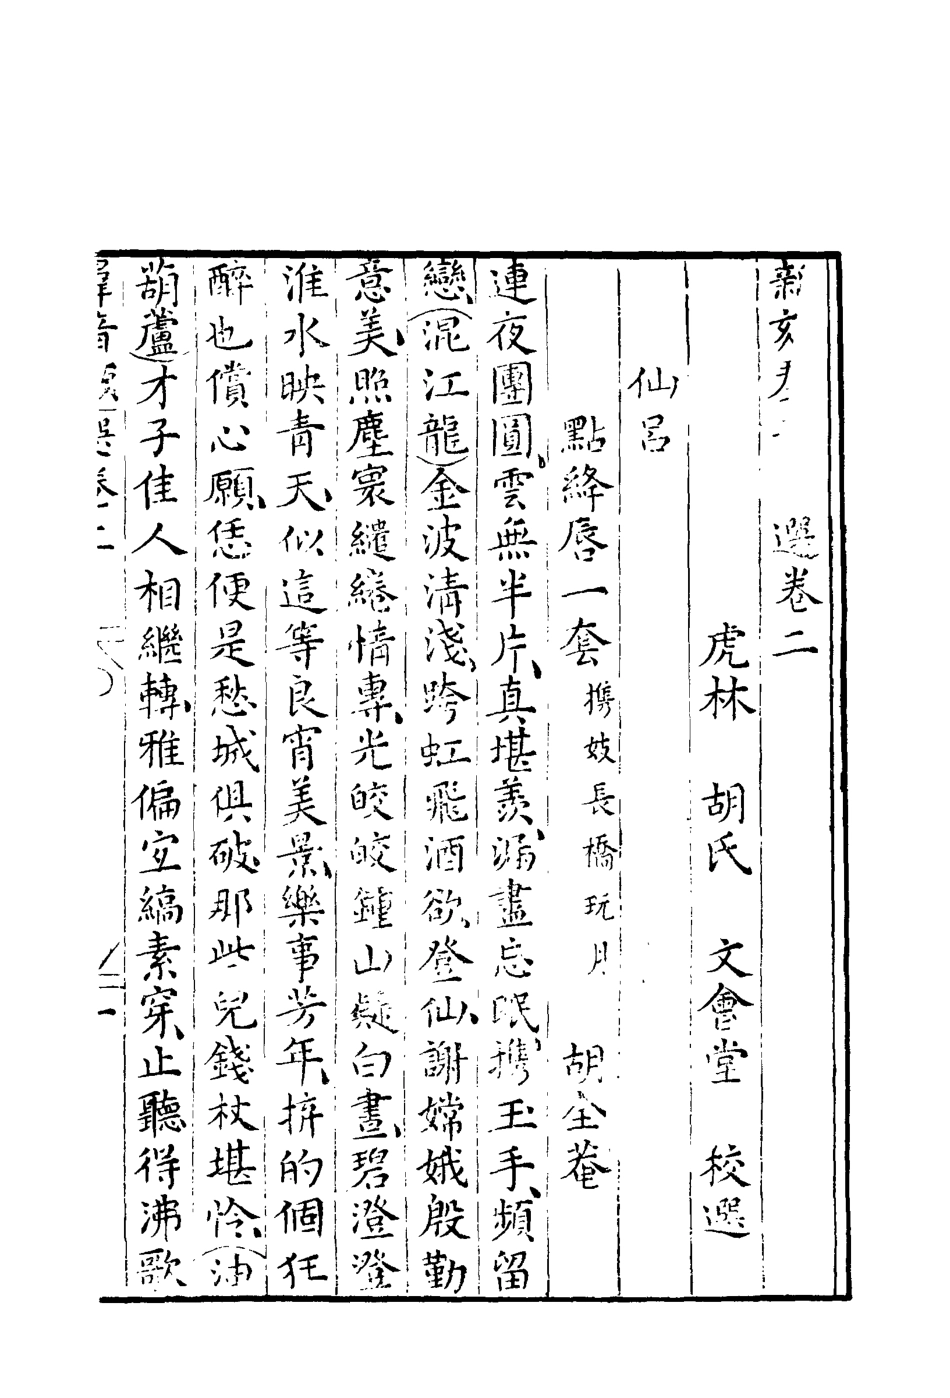 新刻羣音 選卷二
虎林 胡氏 文會堂 校選
仙呂
點絳唇一套 携妓長橋玩月 胡全菴
連夜團圓。雲無半片、真堪羨、漏盡忘眠。携玉手、頻留
戀、（混江龍）金波清淺、跨虹飛酒欲登仙、謝嫦娥殷勤
意美、照塵寰繾綣情專、光皎皎鐘山疑白晝、碧澄澄
淮水映青天、似這等良宵美景、樂事芳年、拚的個狂
醉也償心願、恁便是愁城俱破、那些兒錢杖堪怜、（油
葫蘆）才子佳人相繼轉、雅偏宜縞素穿、止聽得沸歌
羣音 選 卷二 一